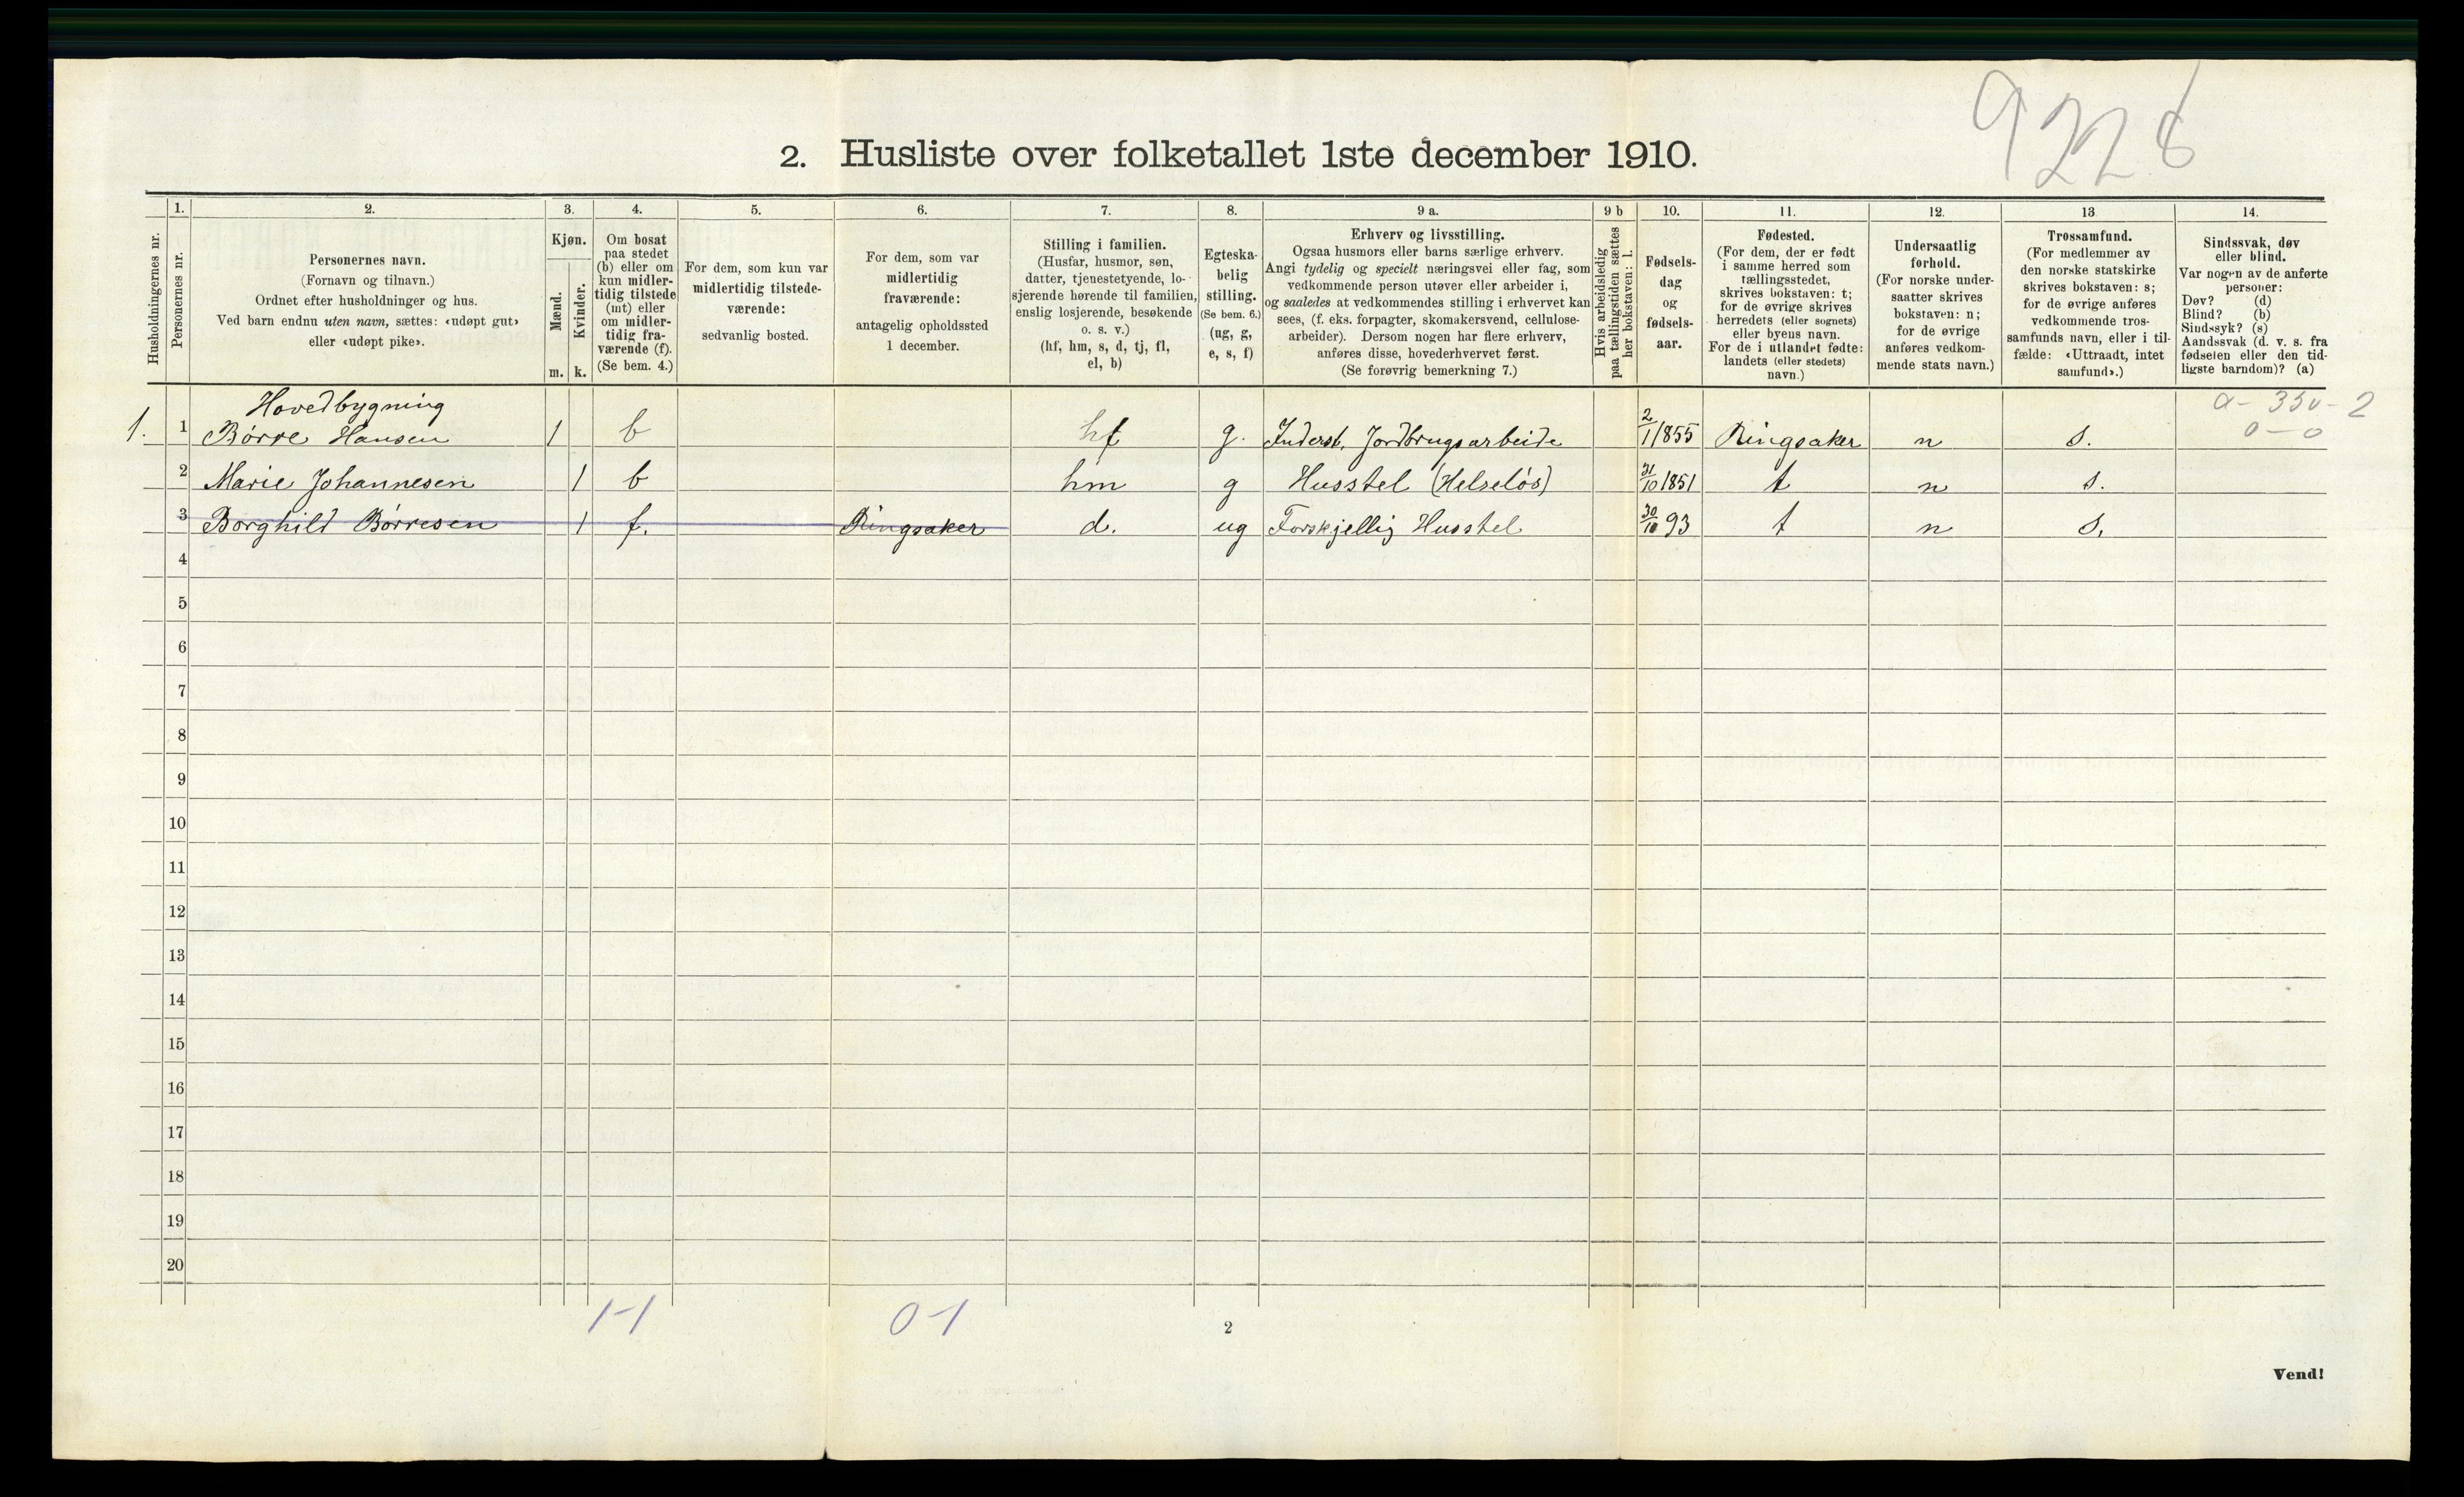 9228
2. Husliste over folketallet 1ste december 1910.
Husholdningernes nr.
1.
Personernes nr.
2.
Personernes navn.
(Fornavn og tilnavn.)
Ordnet efter husholdninger og hus.
Ved barn endnu uten navn, sættes: «udøpt gut»
eller «udøpt pike».
3.
Kjøn.
Mænd.
Kvinder.
m. k.
4.
Om bosat
paa stedet
(b) eller om
kun midler-
tidig tilstede
(mt) eller
om midler-
tidig fra-
værende (f).
(Se bem. 4.)
5.
For dem, som kun var
midlertidig tilstede-
værende:
sedvanlig bosted.
6.
For dem, som var
midlertidig
fraværende:
antagelig opholdssted
1 december.
7.
Stilling i familien.
(Husfar, husmor, søn,
datter, tjenestetyende, lo-
sjerende hørende til familien,
enslig losjerende, besøkende
o. s. v.)
(hf, hm, s, d, tj, fl,
el, b)
8.
Egteska-
belig
stilling.
(Se bem. 6.)
(ug, g,
e, s, f)
9 a.
Erhverv og livsstilling.
Ogsaa husmors eller barns særlige erhverv.
Angi tydelig og specielt næringsvei eller fag, som
vedkommende person utøver eller arbeider i,
og saaledes at vedkommendes stilling i erhvervet kan
sees, (f. eks. forpagter, skomakersvend, cellulose-
arbeider). Dersom nogen har flere erhverv,
anføres disse, hovederhvervet først.
(Se forøvrig bemerkning 7.)
9 b
Hvis arbeidsledig
paa tællingstiden sættes
her bokstaven: l.
10.
Fødsels-
dag
og
fødsels-
aar.
11.
Fødested.
(For dem, der er født
i samme herred som
tællingsstedet,
skrives bokstaven: t;
for de øvrige skrives
herredets (eller sognets)
eller byens navn.
For de i utlandet fødte:
landets (eller stedets)
navn.)
12.
Undersaatlig
forhold.
(For norske under-
saatter skrives
bokstaven: n;
for de øvrige
anføres vedkom-
mende stats navn.)
13
Trossamfund.
(For medlemmer av
den norske statskirke
skrives bokstaven: s;
for de øvrige anføres
vedkommende tros-
samfunds navn, eller i til-
fælde: «Uttraadt, intet
samfund».)
14.
Sindssvak, døv
eller blind.
Var nogen av de anførte
personer:
Døv? (d)
Blind? (b)
Sindssyk? (s)
Aandssvak (d. v. s. fra
fødselen eller den tid-
ligste barndom)? (a)
Hovedbygning
a - 350 - 2
0 - 0
1. 1 Børre Hansen 1 b hf g. Inderst, Jordbrugsarbeide 2/1 1855 Ringsaker n s.
2 Marie Johannesen 1 b hm g Husstel (Helseløs) 31/10 1851 t n s.
3 Borghild Børresen 1 f. Ringsaker d. ug Forskjellig Husstel 30/10 93 t n s.
4
5
6
7
8
9
10
11
12
13
14
15
16
17
18
19
20
1-1 0-1
2
Vend!